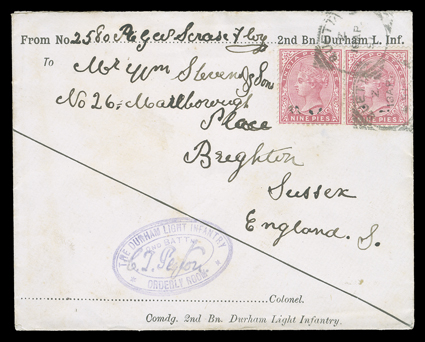 From No. 2580 Pte Geo Scrase F Coy 2nd Bn. Durham L. Inf.
To Mr Wm Stevens & Sons
No 26, Marlborough
Place
Brighton
Sussex
England. S.
NINE PIES NINE PIES
THE DURHAM LIGHT INFANTRY
2ND BATTN
ORDERLY ROOM
Colonel.
Comdg. 2nd Bn. Durham Light Infantry.